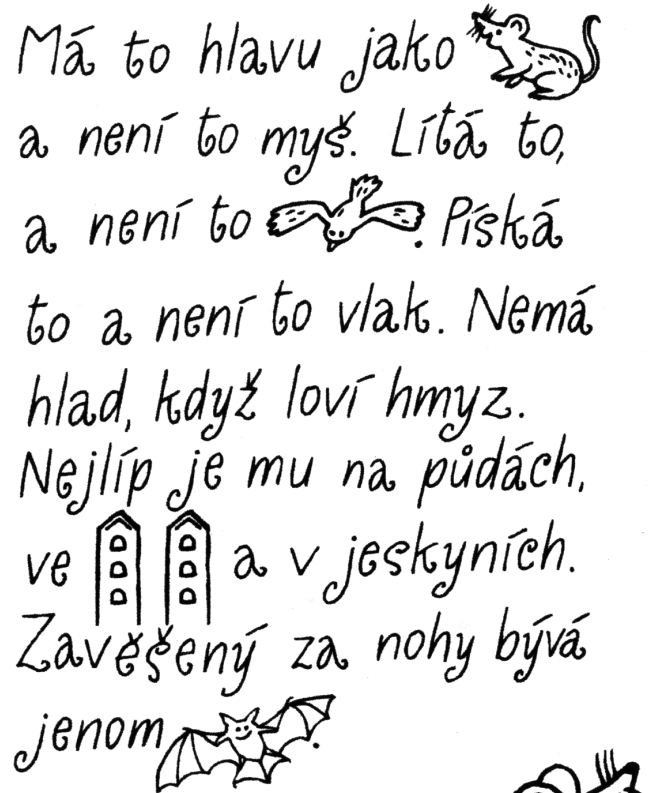 Má to hlavu jako
a není to myš. Lítá to,
a není to . Píská
to a není to vlak. Nemá
hlad, když loví hmyz.
Nejlíp je mu na půdách,
ve a v jeskyních.
Zavěšený za nohy bývá
jenom .